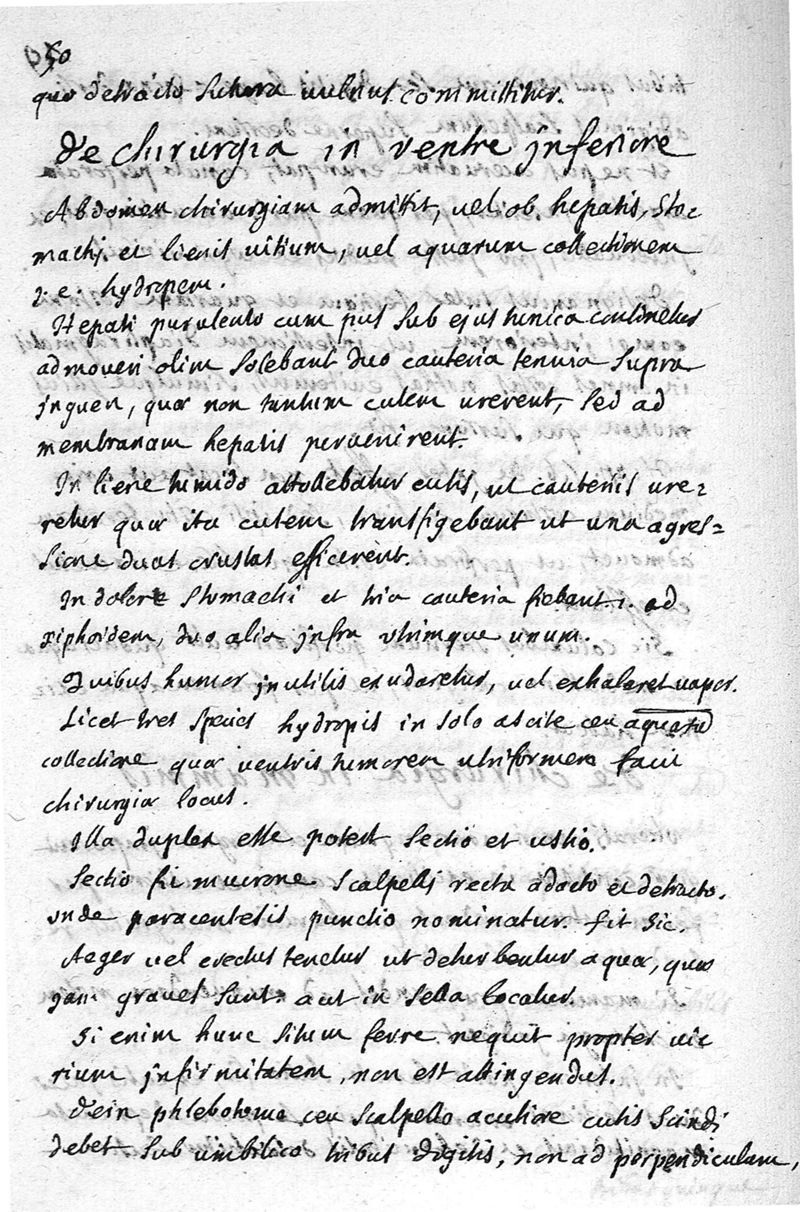 50
quo detracto sutura vulnus committitur.
De chirurgia in ventre inferiore
Abdomen chirurgiam admittit, vel ob. hepatis, Sto-
machi. et lienis vitium, vel aquarum collectionem
i. e. hydropem.
Hepati purulento cum pus sub ejus tunica continetur
admoveri olim solebant duo cauteria tenuia supra
inguen, quæ non tantum cutem urerent, sed ad
membranam hepatis pervenirent.
In liene tumido attollebatur cutis, ut cauteriis ure=
retur quæ ita cutem transfigebant ut una agres=
sione duas crustas efficerent.
In dolore Stomachi et tria cauteria fiebant 1. ad
xiphoidem, duo alia infra utrimque unum.
Quibus humor inutilis exudaretur, vel exhalaret vapor.
Licet tres species hydropis in solo ascite ceu aquarum
collectione quæ ventris tumorem utriformem facit
chirurgiæ locus.
Illa duplex esse potest sectio et ustio.
Sectio fit mucrone scalpelli recta adacto et detracto.
unde paracentesis punctio nominatur. fit sic.
Aeger vel erectus tenetur ut deturbentur aquæ, quæ
jam graves sunt. aut in sella locatur.
Si enim hunc situm ferre nequit propter vi
rium infirmitatem, non est attingendus.
Dein phlebotomo ceu scalpello acutiore cutis scindi
debet sub umbilico tribus digitis, non ad perpendiculum,